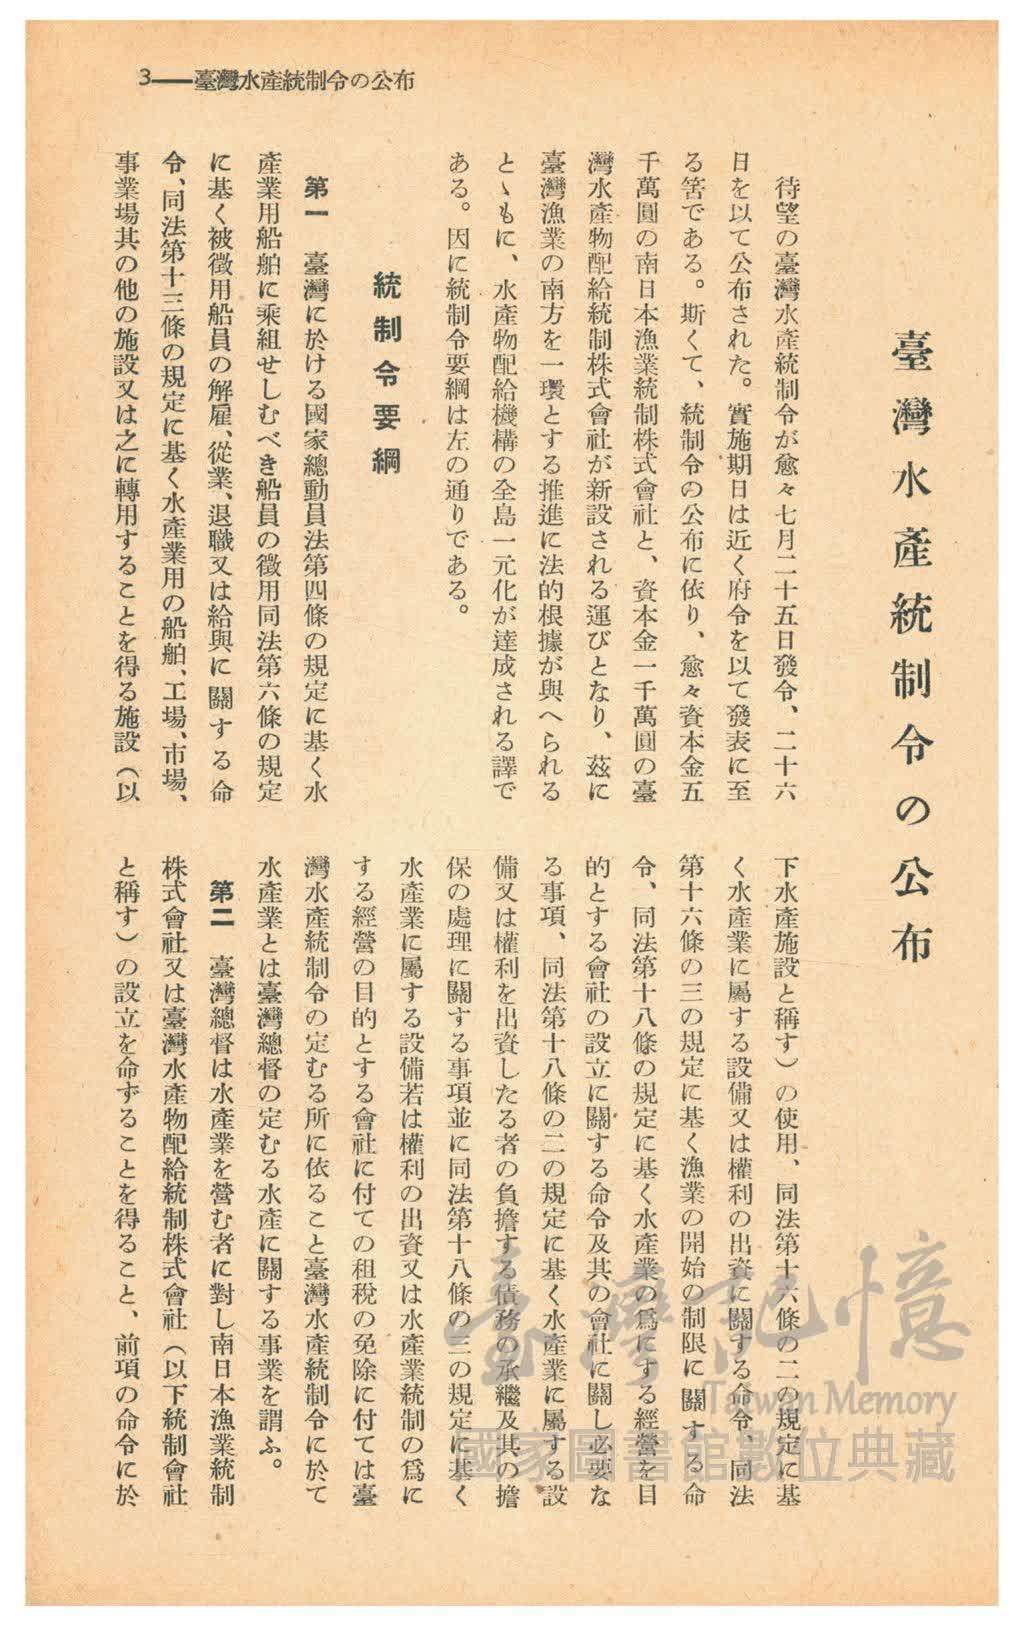 3——臺灣水產統制令の公布
臺灣水產統制令の公布
待望の臺灣水產統制令が愈々七月二十五日發令、二十六
日を以て公布された。實施期日は近く府令を以て發表に至
る筈である。斯くて、統制令の公布に依り、愈々資本金五
千萬圓の南日本漁業統制株式會社と、資本金一千萬圓の臺
灣水產物配給統制株式會社が新設される運びとなり、茲に
臺灣漁業の南方を一環とする推進に法的根據が與へられる
とゝもに、水產物配給機構の全島一元化が達成される譯で
ある。因に統制令要綱は左の通りである。
統制令要綱
第一　臺灣に於ける國家總動員法第四條の規定に基く水
產業用船舶に乘組せしむべき船員の徵用同法第六條の規定
に基く被徵用船員の解雇、從業、退職又は給與に關する命
令、同法第十三條の規定に基く水產業用の船舶、工場、市場、
事業場其の他の施設又は之に轉用することを得る施設（以
下水產施設と稱す）の使用、同法第十六條の二の規定に基
く水產業に屬する設備又は權利の出資に關する命令、同法
第十六條の三の規定に基く漁業の開始の制限に關する命
令、同法第十八條の規定に基く水產業の爲にする經營を目
的とする會社の設立に關する命令及其の會社に關し必要な
る事項、同法第十八條の二の規定に基く水產業に屬する設
備又は權利を出資したる者の負擔する債務の承繼及其の擔
保の處理に關する事項並に同法第十八條の三の規定に基く
水產業に屬する設備若は權利の出資又は水產業統制の爲に
する經營の目的とする會社に付ての租稅の免除に付ては臺
灣水產統制令の定むる所に依ること臺灣水產統制令に於て
水產業とは臺灣總督の定むる水產に關する事業を謂ふ。
第二　臺灣總督は水產業を營む者に對し南日本漁業統制
株式會社又は臺灣水產物配給統制株式會社（以下統制會社
と稱す）の設立を命ずることを得ること、前項の命令に於
臺灣記憶
Taiwan Memory
國家圖書館數位典藏